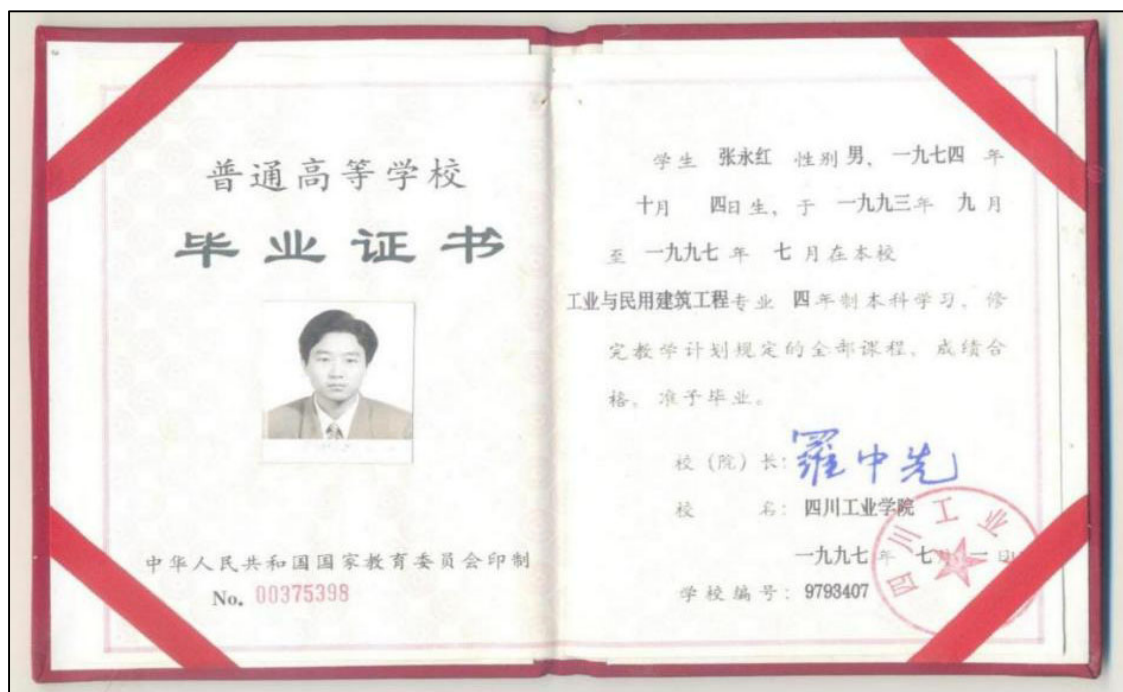 普通高等学校
毕业证书
中华人民共和国国家教育委员会印制
No. 00375398
学生 张永红 性别 男、一九七四 年
十月 四日生、于 一九九三年 九月
至 一九九七 年 七月在本校
工业与民用建筑工程专业 四年制本科学习、修
完教学计划规定的全部课程、成绩合
格、准予毕业。
校(院)长:羅中先
校 名:四川工业学院
一九九七 年 七月 一日
学校编号:9793407
四川工业